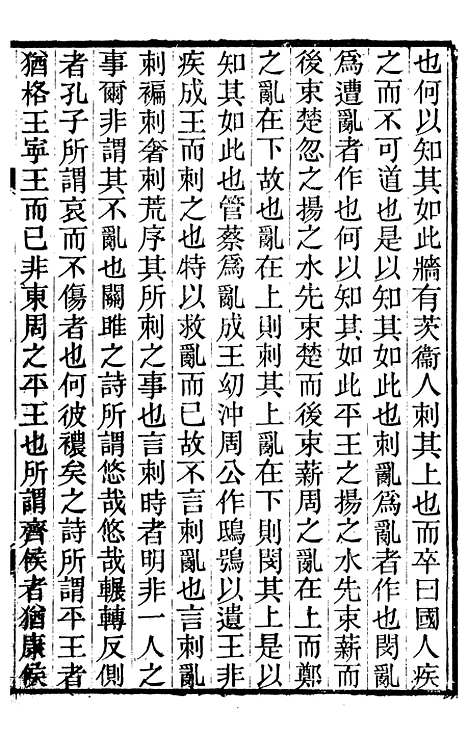 也何以知其如此牆有茨衞人刺其上也而卒曰國人疾
之而不可道也是以知其如此也刺亂爲亂者作也閔亂
爲遭亂者作也何以知其如此平王之揚之水先束薪而
後束楚忽之揚之水先束楚而後束薪周之亂在上而鄭
之亂在下故也亂在上則刺其上亂在下則閔其上是以
知其如此也管蔡爲亂成王幼沖周公作鴟鴞以遺王非
疾成王而刺之也特以救亂而已故不言刺亂也言刺亂
刺褊刺奢刺荒序其所刺之事也言刺時者明非一人之
事爾非謂其不亂也關雎之詩所謂悠哉悠哉輾轉反側
者孔子所謂哀而不傷者也何彼襛矣之詩所謂平王者
猶格王寧王而已非東周之平王也所謂齊侯者猶康侯